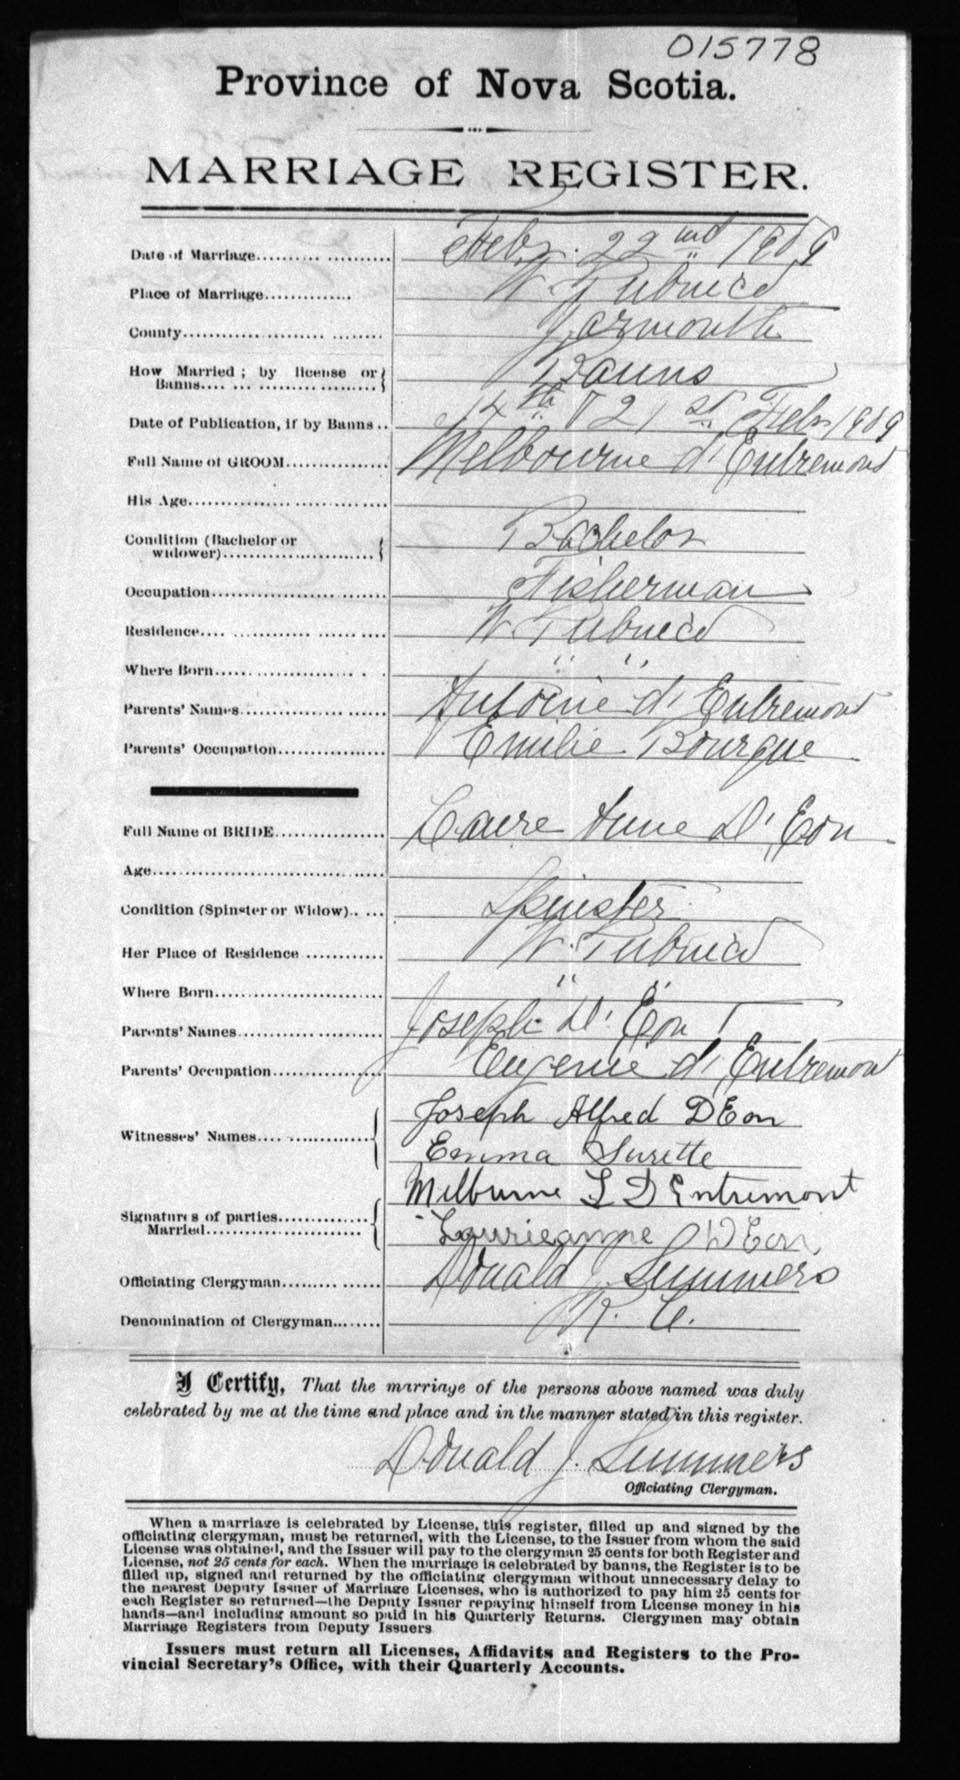 015778
Province of Nova Scotia.
MARRIAGE REGISTER.
Date of Marriage.......... Feby. 22nd 1909
Place of Marriage.............. W. Pubnico
County.......................... Yarmouth
How Married ; by license or Banns.... Banns
Date of Publication, if by Banns .. 14th & 21st Feb 1909
Full Name of GROOM............... Melbourne d'Entremont
His Age.............................
Condition (Bachelor or widower)...... Bachelor
Occupation.......................... Fisherman
Residence.... .................... W Pubnico
Where Born................... " "
Parents' Names..................... Antoine d'Entremont
Parents' Occupation................ Emilie Bourque
Full Name of BRIDE................ Laure Anne D'Eon
Age.................................
Condition (Spinster or Widow).. .... Spinster
Her Place of Residence ............ W. Pubnico
Where Born......................... " "
Parents' Names..................... Joseph D'Eon
Parents' Occupation................ Eugenie d'Entremont
Witnesses' Names.... .............. Joseph Alfred DEon
Emma Surette
Signatures of parties Married...... Melburne L D Entremont
Laurieanne D Eon
Officiating Clergyman.............. Donald J. Summers
Denomination of Clergyman.......... R. C.
I Certify, That the marriage of the persons above named was duly
celebrated by me at the time and place and in the manner stated in this register.
Donald J. Summers
Officiating Clergyman.
When a marriage is celebrated by License, this register, filled up and signed by the
officiating clergyman, must be returned, with the License, to the Issuer from whom the said
License was obtained, and the Issuer will pay to the clergyman 25 cents for both Register and
License, not 25 cents for each. When the marriage is celebrated by banns, the Register is to be
filled up, signed and returned by the officiating clergyman without unnecessary delay to
the nearest Deputy Issuer of Marriage Licenses, who is authorized to pay him 25 cents for
each Register so returned—the Deputy Issuer repaying himself from License money in his
hands—and including amount so paid in his Quarterly Returns. Clergymen may obtain
Marriage Registers from Deputy Issuers
Issuers must return all Licenses, Affidavits and Registers to the Pro-
vincial Secretary's Office, with their Quarterly Accounts.